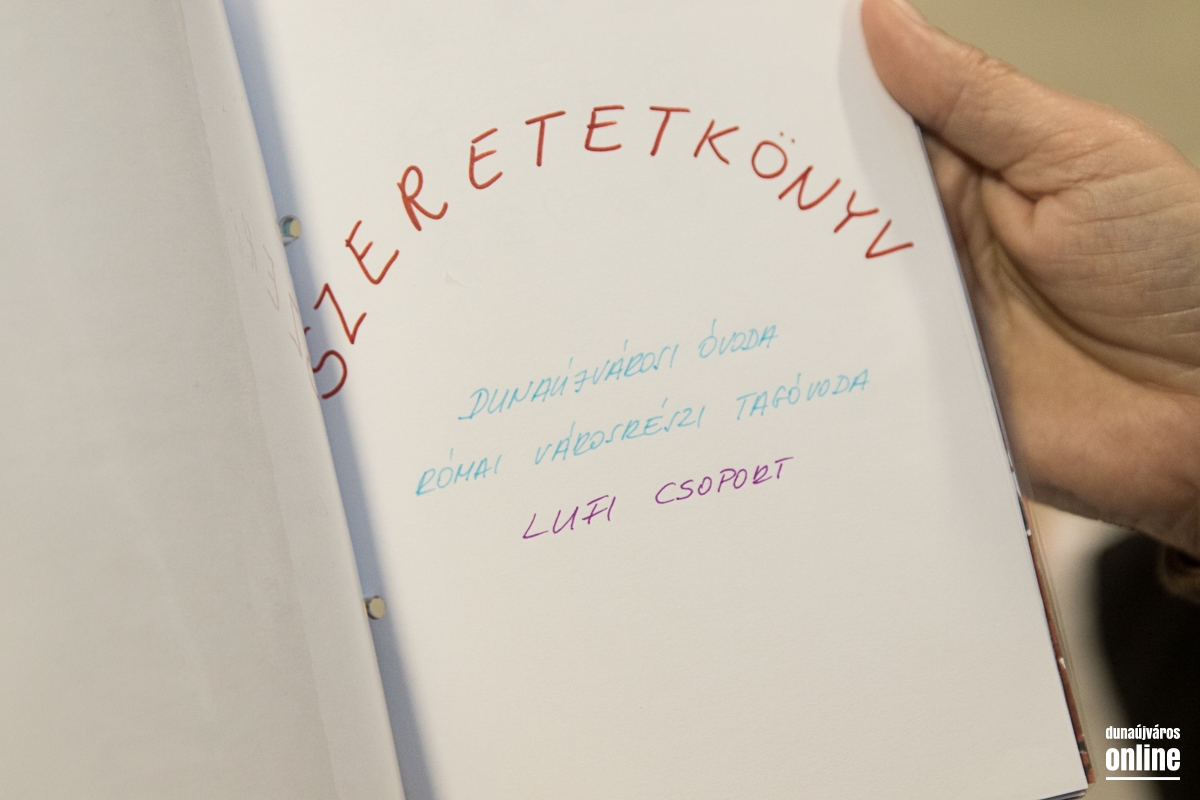 SZERETETKÖNYV
DUNAÚJVÁROSI ÓVODA
RÓMAI VÁROSRÉSZI TAGÓVODA
LUFI CSOPORT
dunaújváros
online